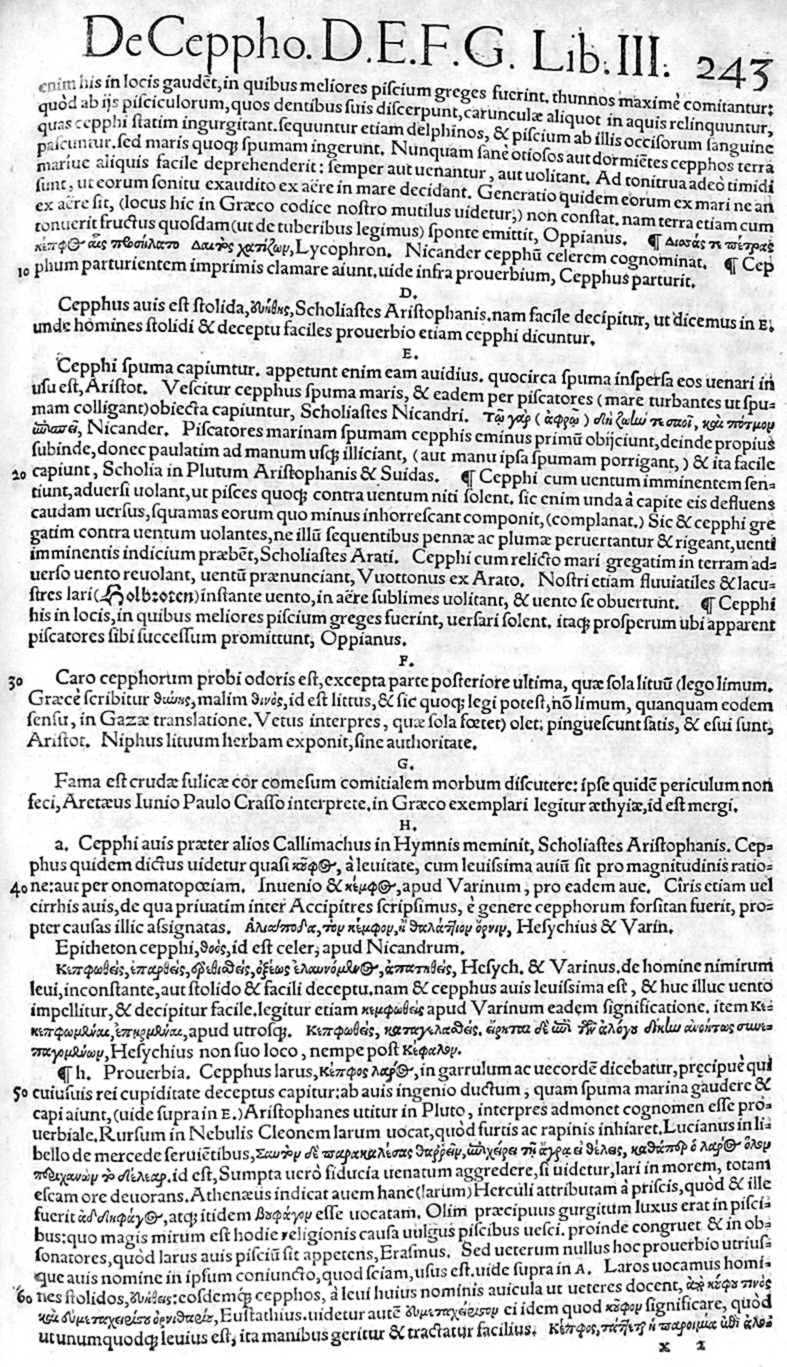 De Ceppho. D.E.F.G. Lib. III. 243
enim his in locis gaudēt, in quibus meliores piscium greges fuerint. thunnos maximè comitantur:
quòd ab ijs pisciculorum, quos dentibus suis discerpunt, carunculæ aliquot in aquis relinquuntur,
quas cepphi statim ingurgitant. sequuntur etiam delphinos, & piscium ab illis occisorum sanguine
pascuntur. sed maris quoq; spumam ingerunt. Nunquam sanè otiosos aut dormiētes cepphos terra
mariue aliquis facile deprehenderit: semper aut uenantur, aut uolitant. Ad tonitrua adeò timidi
sunt, ut eorum sonitu exaudito ex aëre in mare decidant. Generatio quidem eorum ex mari ne an
ex aëre sit, (locus hic in Græco codice nostro mutilus uidetur,) non constat. nam terra etiam cum
tonuerit fructus quosdam (ut de tuberibus legimus) sponte emittit, Oppianus. ¶
Lycophron. Nicander cepphū celerem cognominat. ¶ Cep
10 phum parturientem imprimis clamare aiunt. uide infra prouerbium, Cepphus parturit.
D.
Cepphus auis est stolida, Scholiastes Aristophanis. nam facile decipitur, ut dicemus in E.
unde homines stolidi & deceptu faciles prouerbio etiam cepphi dicuntur.
E.
Cepphi spuma capiuntur. appetunt enim eam auidius. quocirca spuma inspersa eos uenari in
usu est, Aristot. Vescitur cepphus spuma maris, & eadem per piscatores (mare turbantes ut spu-
mam colligant) obiecta capiuntur, Scholiastes Nicandri. Τῷ γὰρ (ἀφρῷ)
Nicander. Piscatores marinam spumam cepphis eminus primū obijciunt, deinde propius
subinde, donec paulatim ad manum usq; illiciant, (aut manu ipsa spumam porrigant,) & ita facile
20 capiunt, Scholia in Plutum Aristophanis & Suidas. ¶ Cepphi cum uentum imminentem sen-
tiunt, aduersi uolant, ut pisces quoq; contra uentum niti solent. sic enim unda à capite eis defluens
caudam uersus, squamas eorum quo minus inhorrescant componit, (complanat.) Sic & cepphi gre
gatim contra uentum uolantes, ne illū sequentibus pennæ ac plumæ peruertantur & rigeant, uenti
imminentis indicium præbēt, Scholiastes Arati. Cepphi cum relicto mari gregatim in terram ad-
uerso uento reuolant, uentū prænunciant, Vuottonus ex Arato. Nostri etiam fluuiatiles & lacu-
stres lari (Holbroten) instante uento, in aëre sublimes uolitant, & uento se obuertunt. ¶ Cepphi
his in locis, in quibus meliores piscium greges fuerint, uersari solent. itaq; prosperum ubi apparent
piscatores sibi successum promittunt, Oppianus.
F.
30 Caro cepphorum probi odoris est, excepta parte posteriore ultima, quæ sola lituū (lego limum.
Græcè scribitur malim θινὸς, id est littus, & sic quoq; legi potest, nō limum, quanquam eodem
sensu, in Gazæ translatione. Vetus interpres, quæ sola fœtet) olet; pinguescunt satis, & esui sunt,
Aristot. Niphus lituum herbam exponit, sine authoritate.
G.
Fama est crudæ fulicæ cor comesum comitialem morbum discutere: ipse quidē periculum non
feci, Aretæus Iunio Paulo Crasso interprete. in Græco exemplari legitur æthyiæ, id est mergi.
H.
a. Cepphi auis præter alios Callimachus in Hymnis meminit, Scholiastes Aristophanis. Cep-
phus quidem dictus uidetur quasi κοῦφος, à leuitate, cum leuissima auiū sit pro magnitudinis ratio-
40 ne: aut per onomatopœiam. Inuenio & κέμφος, apud Varinum, pro eadem aue. Cîris etiam uel
cirrhis auis, de qua priuatim inter Accipitres scripsimus, è genere cepphorum forsitan fuerit, pro-
pter causas illic assignatas. Hesychius & Varin.
Epitheton cepphi, θοὸς, id est celer, apud Nicandrum.
Κεπφωθεὶς, ἐπαρθεὶς, Hesych. & Varinus. de homine nimirum
leui, inconstante, aut stolido & facili deceptu. nam & cepphus auis leuissima est, & huc illuc uento
impellitur, & decipitur facile. legitur etiam κεμφωθεὶς apud Varinum eadem significatione. item
apud utrosq;. Κεπφωθεὶς,
Hesychius non suo loco, nempe post Κεφαλον.
¶ h. Prouerbia. Cepphus larus, Κέπφος λάρος, in garrulum ac uecordē dicebatur, præcipuè qui
50 cuiusuis rei cupiditate deceptus capitur: ab auis ingenio ductum, quam spuma marina gaudere &
capi aiunt, (uide supra in E.) Aristophanes utitur in Pluto, interpres admonet cognomen esse pro-
uerbiale. Rursum in Nebulis Cleonem larum uocat, quòd furtis ac rapinis inhiaret. Lucianus in li-
bello de mercede seruiētibus,
id est, Sumpta uerò fiducia uenatum aggredere, si uidetur, lari in morem, totam
escam ore deuorans. Athenæus indicat auem hanc (larum) Herculi attributam à priscis, quòd & ille
fuerit ἀδδηφάγος, atq; itidem βουφάγον esse uocatam. Olim præcipuus gurgitum luxus erat in pisci-
bus: quo magis mirum est hodie religionis causa uulgus piscibus uesci. proinde congruet & in ob-
sonatores, quòd larus auis pisciū sit appetens, Erasmus. Sed ueterum nullus hoc prouerbio utrius-
que auis nomine in ipsum coniuncto, quod sciam, usus est. uide supra in A. Laros uocamus homi-
60 nes stolidos, eosdemq; cepphos, à leui huius nominis auicula ut ueteres docent,
Eustathius. uidetur autē ei idem quod κοῦφον significare, quòd
ut unumquodq; leuius est, ita manibus geritur & tractatur facilius. Κέπφος,
x 2